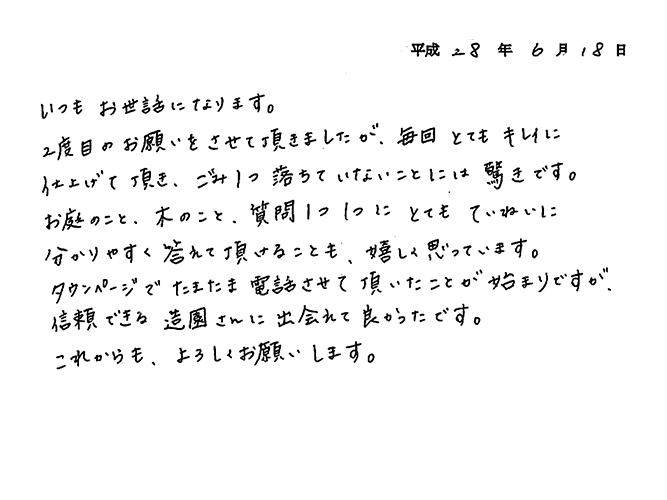 平成 28 年 6 月 18 日
いつも お世話になります。
2度目のお願いをさせて頂きましたが、毎回 とても キレイに
仕上げて頂き、ごみ1つ 落ちていないことには 驚きです。
お庭のこと、木のこと、質問1つ1つに とても ていねいに
分かりやすく 答えて頂けることも、嬉しく思っています。
タウンページで たまたま 電話させて 頂いたことが 始まりですが、
信頼できる 造園さんに 出会れて 良かったです。
これからも、よろしくお願いします。